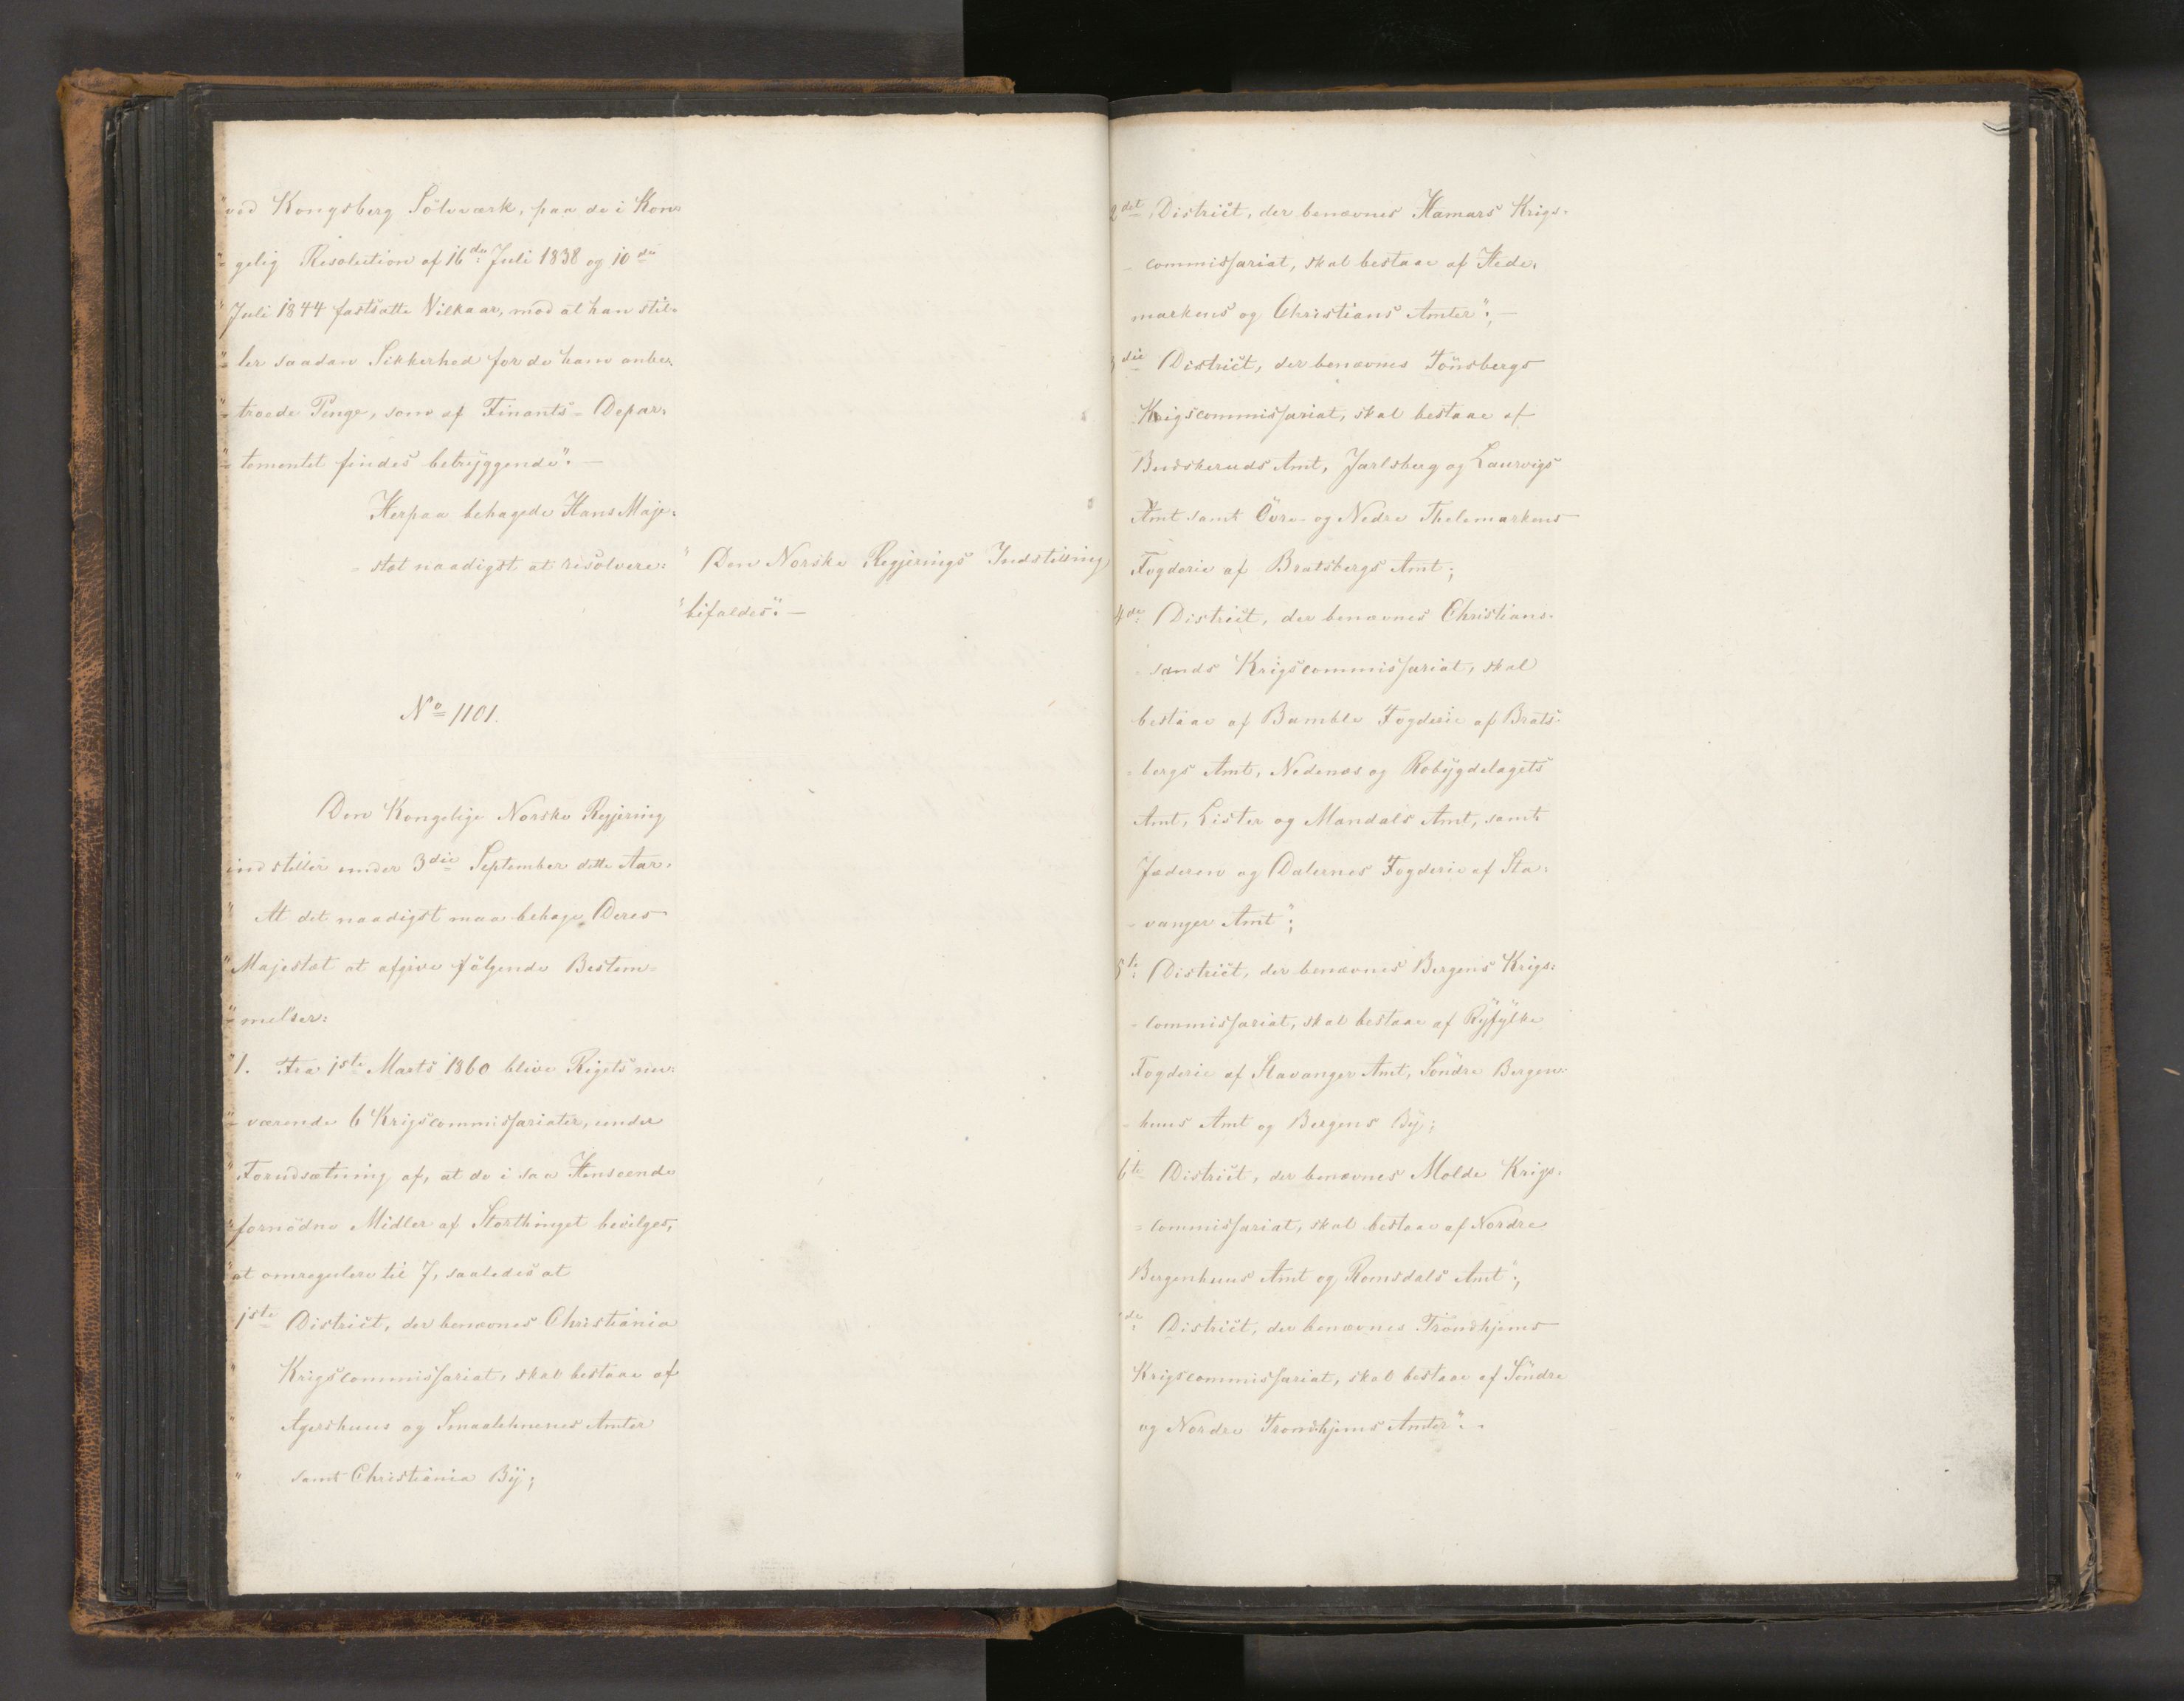 "ved Kongsberg Sölvværk, paa de i Kon-
"- gelig Resolution af 16de Juli 1838 og 10de
"Juli 1844 fastsatte Vilkaar, mod at han stil-
"- ler saadan Sikkerhed for de ham anbe-
"- troede Penge, som af Finants- Depar-
"- tementet findes betryggende". —
Herpaa behagede Hans Maje-
- stæt naadigst at resolvere:
" Den Norske Regjerings Indstilling
"bifaldes". —
No 1101.
Den Kongelige Norske Regjering
indstiller under 3die September dette Aar,
" At det naadigst maa behage Deres
"Majestæt at afgive fölgende Bestem-
"- melser:
"1. Fra 1ste Marts 1860 blive Rigets nu-
"- værende 6 Krigscommissariater, under
"Forudsætning af, at de i saa Henseende
"fornödne Midler af Storthinget bevilges,
"at omregulere til 7, saaledes at
1ste District, der benævnes Christiania
" Krigscommissariat, skal bestaae af
" Agershuus og Smaalehnenes Amter
" samt Christiania By;
2det District, der benævnes Hamars Krigs-
- commissariat, skal bestaae af Hede-
markens og Christians Amter"; —
3die District, der benævnes Tönsbergs
Krigscommissariat, skal bestaae af
Budskeruds Amt, Jarlsberg og Laurvigs
Amt samt Övre- og Nedre Thelemarkens
Fogderie af Bratsbergs Amt;
4de District, der benævnes Christians-
- sands Krigscommissariat, skal
bestaae af Bamble Fogderie af Brats-
- bergs Amt, Nedenæs og Robygdelagets
Amt, Lister og Mandals Amt, samt
Jæderen og Dalernes Fogderie af Sta-
- vanger Amt";
5te District, der benævnes Bergens Krigs-
- commissariat, skal bestaae af Ryfylke
Fogderie af Stavanger Amt, Söndre Bergen-
- huus Amt og Bergens By;
6te District, der benævnes Molde Krigs-
- commissariat, skal bestaae af Nordre
Bergenhuus Amt og Romsdals Amt";
de District, der benævnes Trondhjems
Krigscommissariat, skal bestaae af Söndre
og Nordre Trondhjems Amter". -